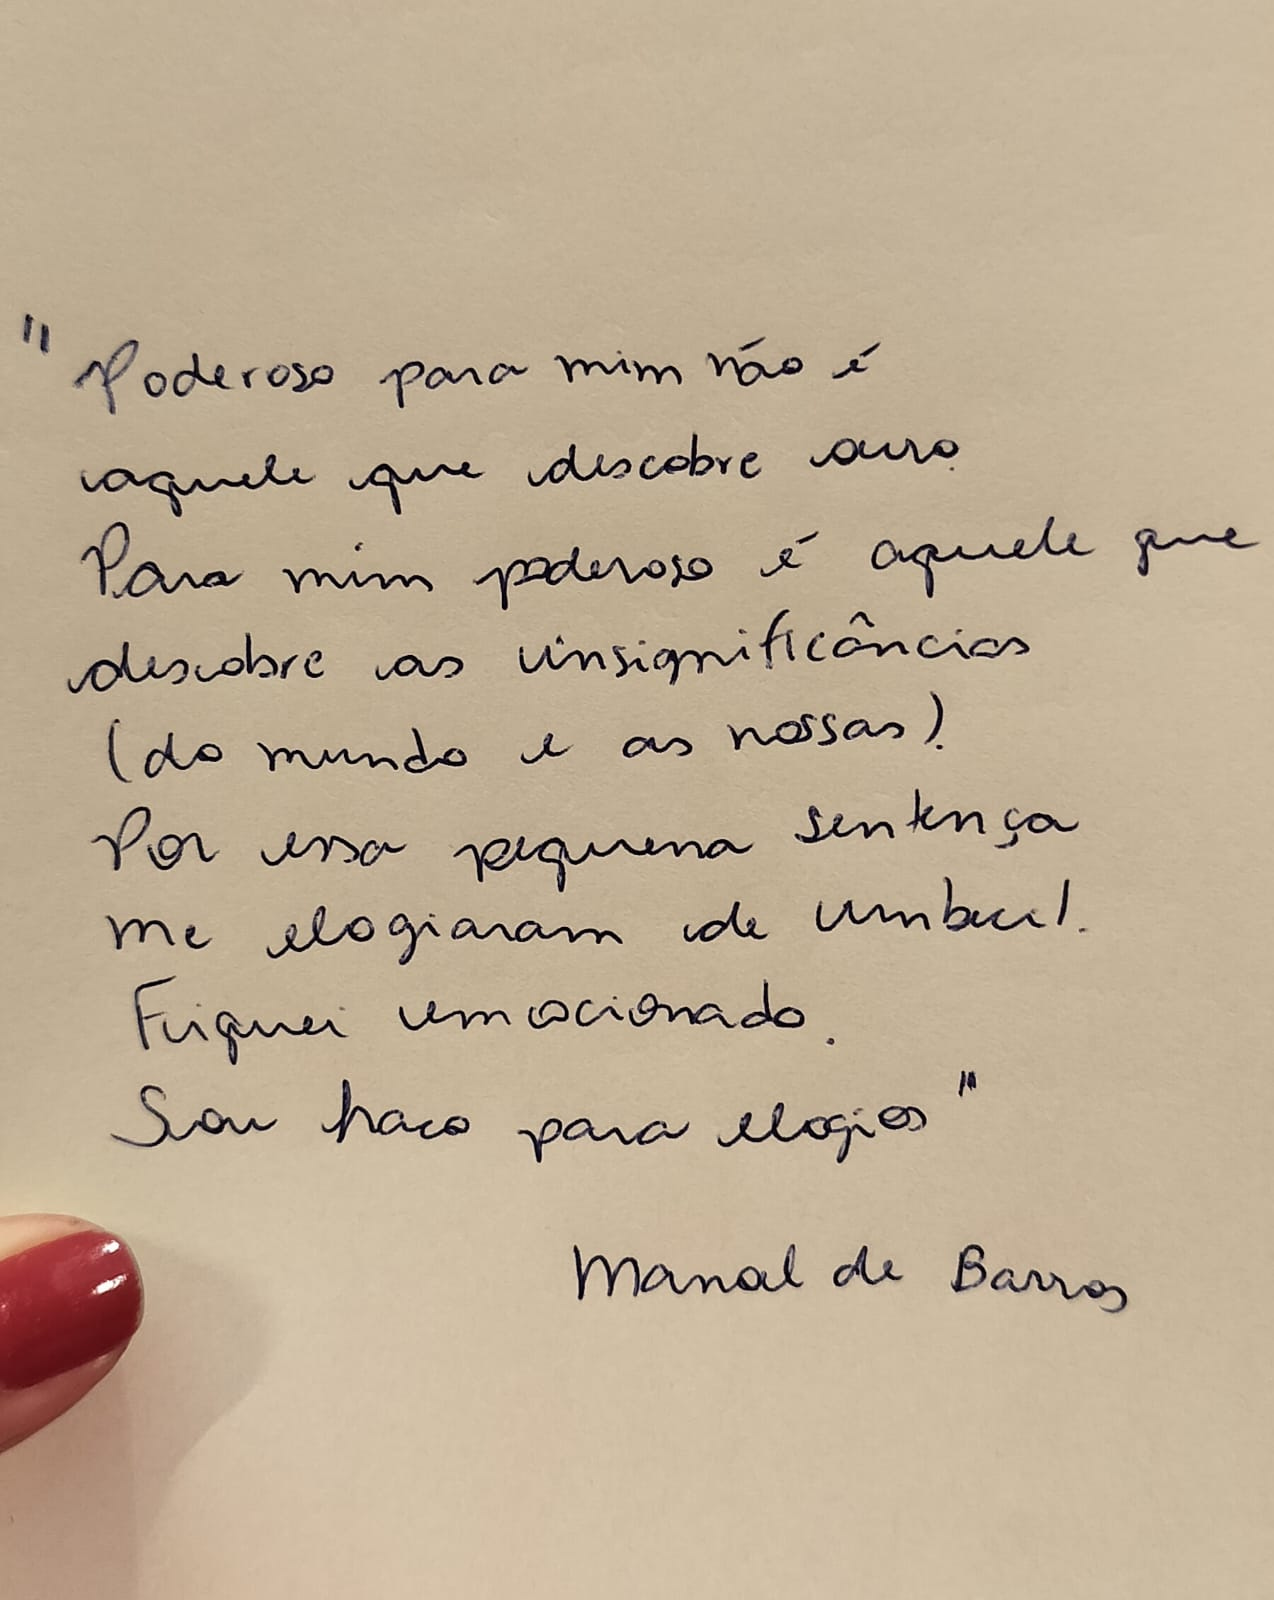 "Poderoso para mim não é
aquele que descobre ouro.
Para mim poderoso é aquele que
descobre as insignificâncias
(do mundo e as nossas).
Por essa pequena sentença
me elogiaram de imbecil.
Fiquei emocionado.
Sou fraco para elogios"
Manoel de Barros